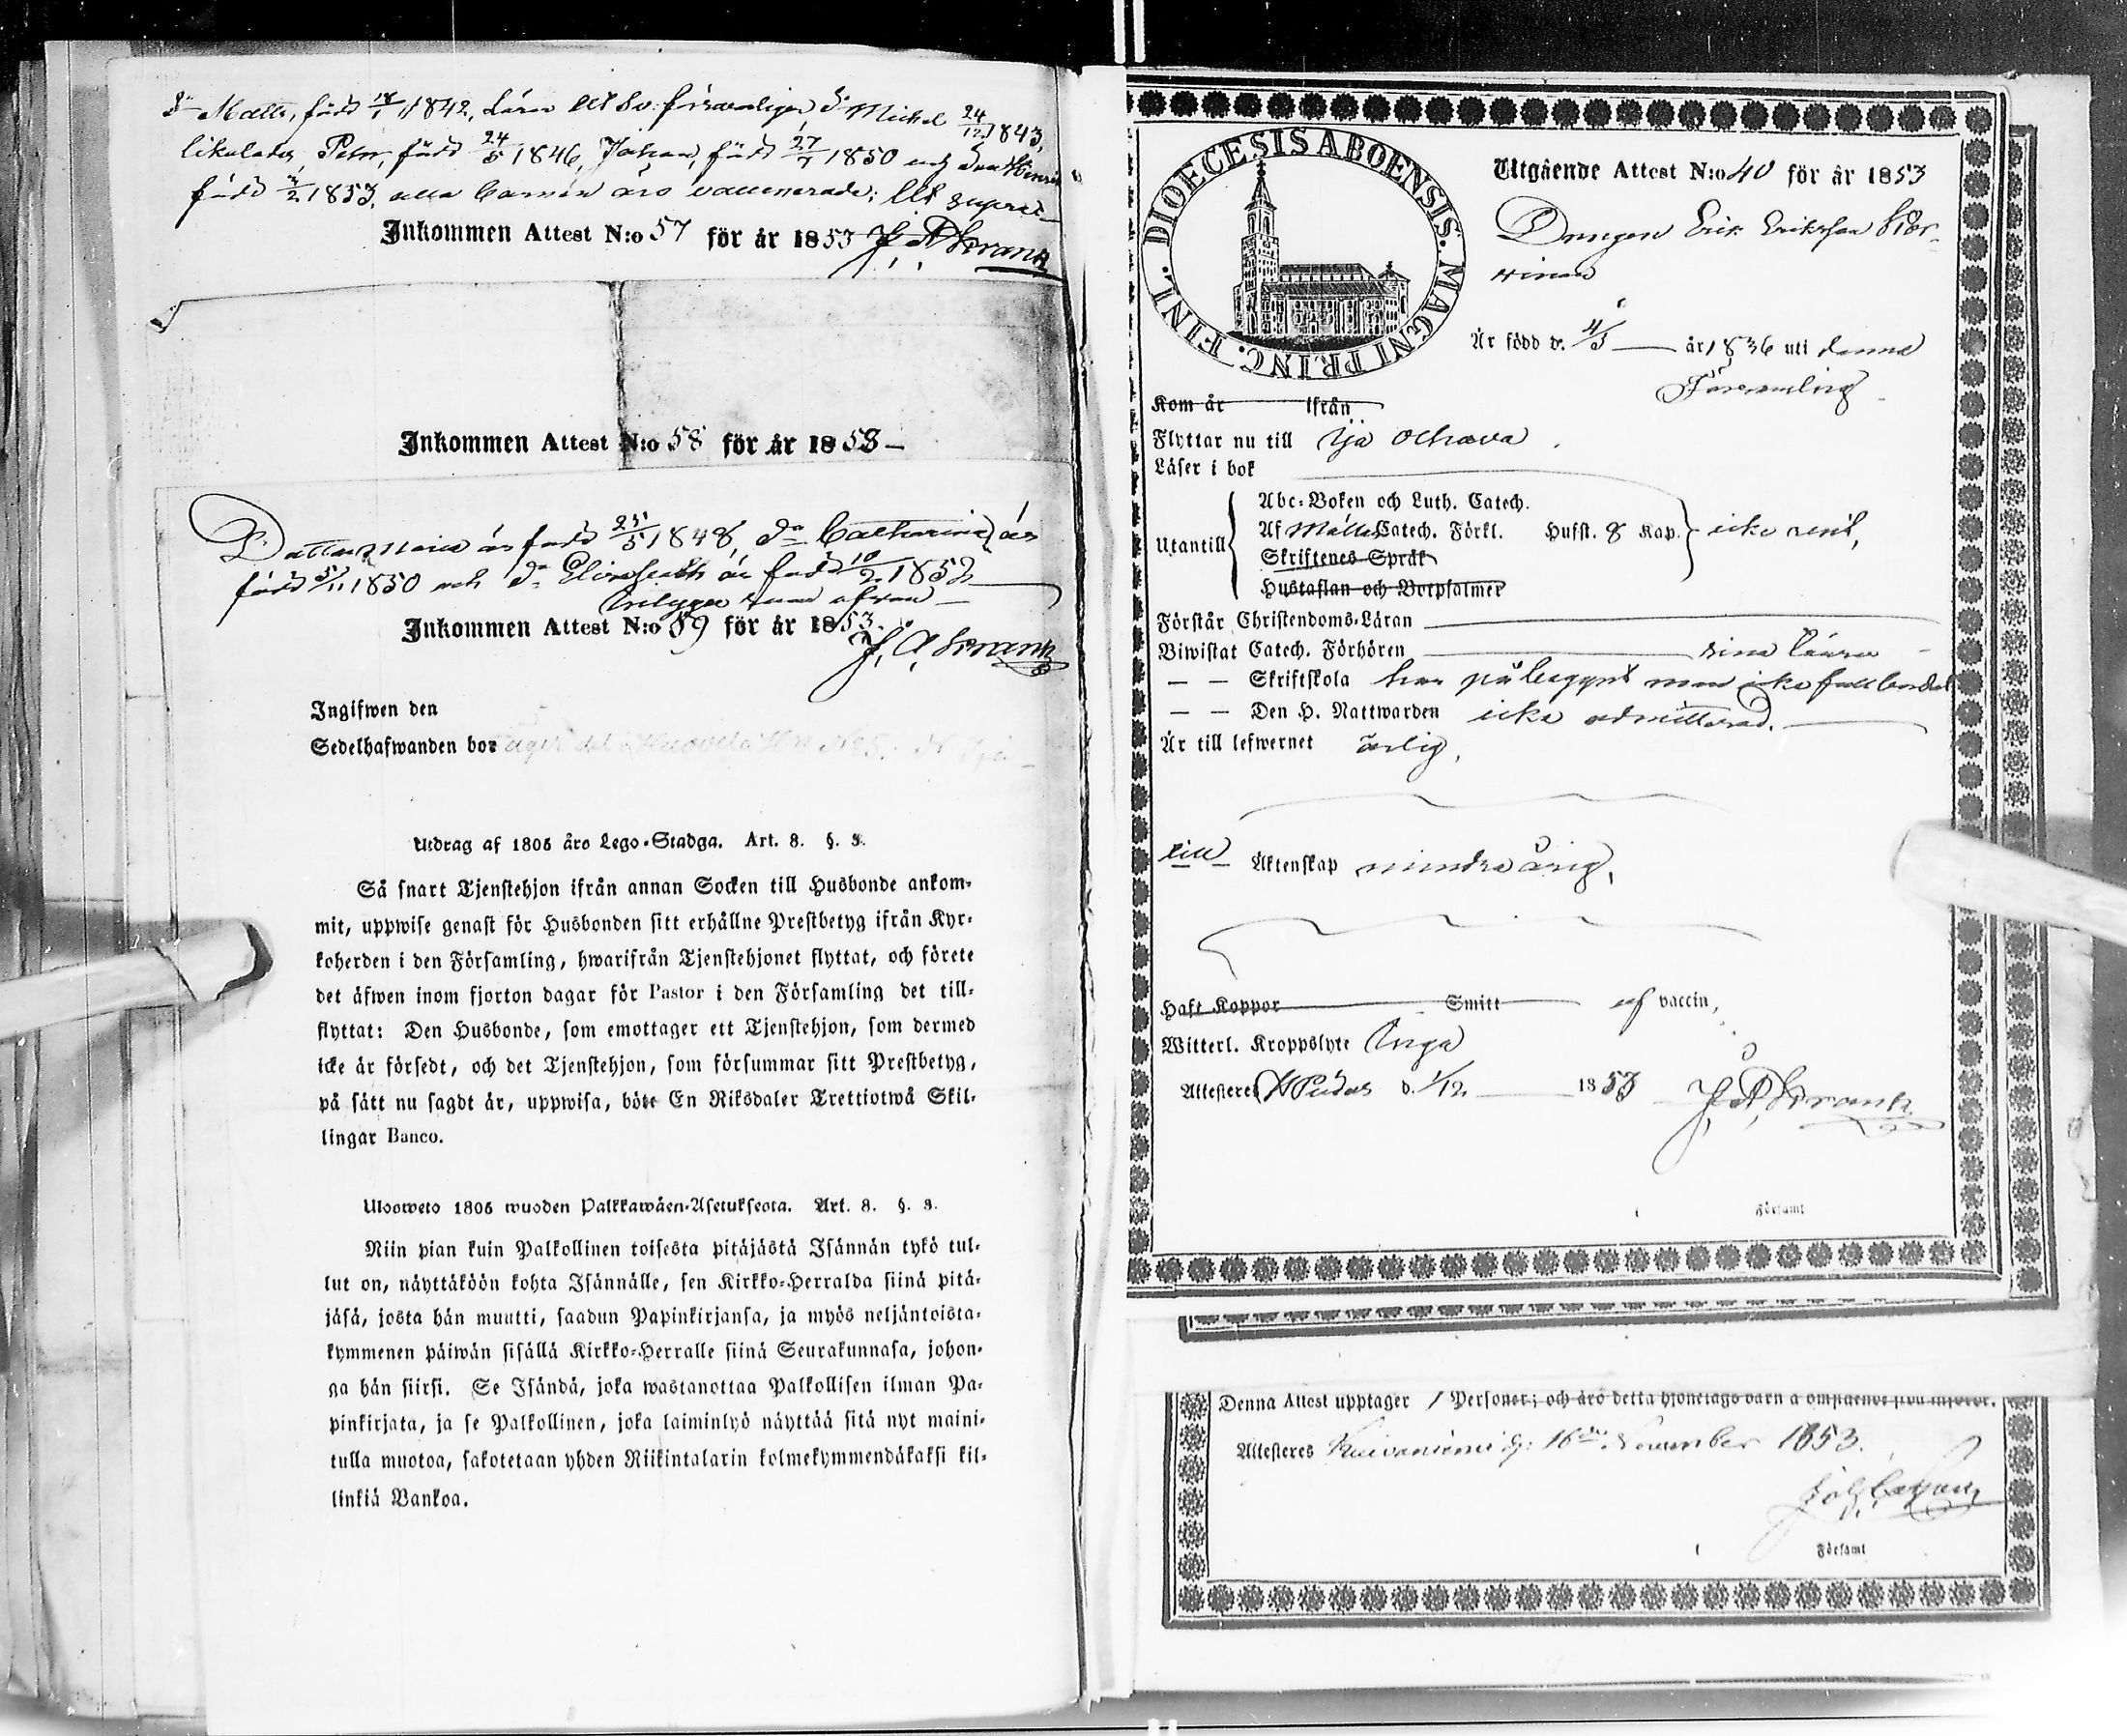 Matts, född 1842, Michel 24/12 1843,
Petr, född 24/5 1846, Johan, född 27/7 1850 och
född 1853, alla barnen äro vaccinerade; Ut supra
Inkommen Attest N:o 57 för år 1853 J. A. Krank
Inkommen Attest N:o 58 för år 1853
Maria är född 25/5 1848, Catharina är
född 5/11 1850 och Elisabeth är född 10/2 1852
Intygar
Inkommen Attest N:o 59 för år 1853.
J. A. Krank
Ingifwen den
Sedelhafwanden bor
Utdrag af 1805 års Lego-Stadga. Art. 8. §. 3.
Så snart Tjenstehjon ifrån annan Socken till Husbonde ankom-
mit, uppwise genast för Husbonden sitt erhållne Prestbetyg ifrån Kyr-
koherden i den Församling, hwarifrån Tjenstehjonet flyttat, och förete
det äfwen inom fjorton dagar för Pastor i den Församling det till-
flyttat: Den Husbonde, som emottager ett Tjenstehjon, som dermed
icke är försedt, och det Tjenstehjon, som försummar sitt Prestbetyg,
på sätt nu sagdt är, uppwisa, böte En Riksdaler Trettiotwå Skil-
lingar Banco.
Ulosweto 1805 wuoden Palkkawäen-Asetuksesta. Art. 8. §. 3.
Niin pian kuin Palkollinen toisesta pitäjästä Isännän tykö tul-
lut on, näyttäköön kohta Isännälle, sen Kirkko-Herralda siinä pitä-
jäsä, josta hän muutti, saadun Papinkirjansa, ja myös neljäntoista-
kymmenen päiwän sisällä Kirkko-Herralle siinä Seurakunnasa, johon-
ga hän siirsi. Se Isändä, joka wastanottaa Palkollisen ilman Pa-
pinkirjata, ja se Palkollinen, joka laiminlyö näyttää sitä nyt maini-
tulla muotoa, sakotetaan yhden Riikintalarin kolmekymmendäkaksi kil-
linkiä Bankoa.
DIOECESIS ABOENSIS. MAGNI PRINC. FINL.
Utgående Attest N:o 40 för år 1853
Drängen Erik Eriksson
Är född d. 4/3 år 1836 uti denna
Församling
Kom år ifrån
Flyttar nu till Ijå
Läser i bok
Utantill
Abc-Boken och Luth. Catech.
Af Catech. Förkl. Husst. 8 Kap. icke rent,
Skriftenes Språk
Hustaflan och Botpsalmer
Förstår Christendoms-Läran
Biwistat Catech. Förhören sina
— — Skriftskola har påbegynt men icke fullbordat
— — Den H. Nattwarden icke admitterad.
Är till lefwernet ärlig,
till Äktenskap minderårig,
Haft Koppor Smitt af vaccin,
Witterl. Kroppslyte Inga
Attesteres Pudas d. 1/12 1853 J. A. Krank
Församl
Denna Attest upptager 1 Personer; och äro detta hjonelags barn å omstående sida införde.
Attesteres Kuivaniemi d: 16de November 1853.
Församl